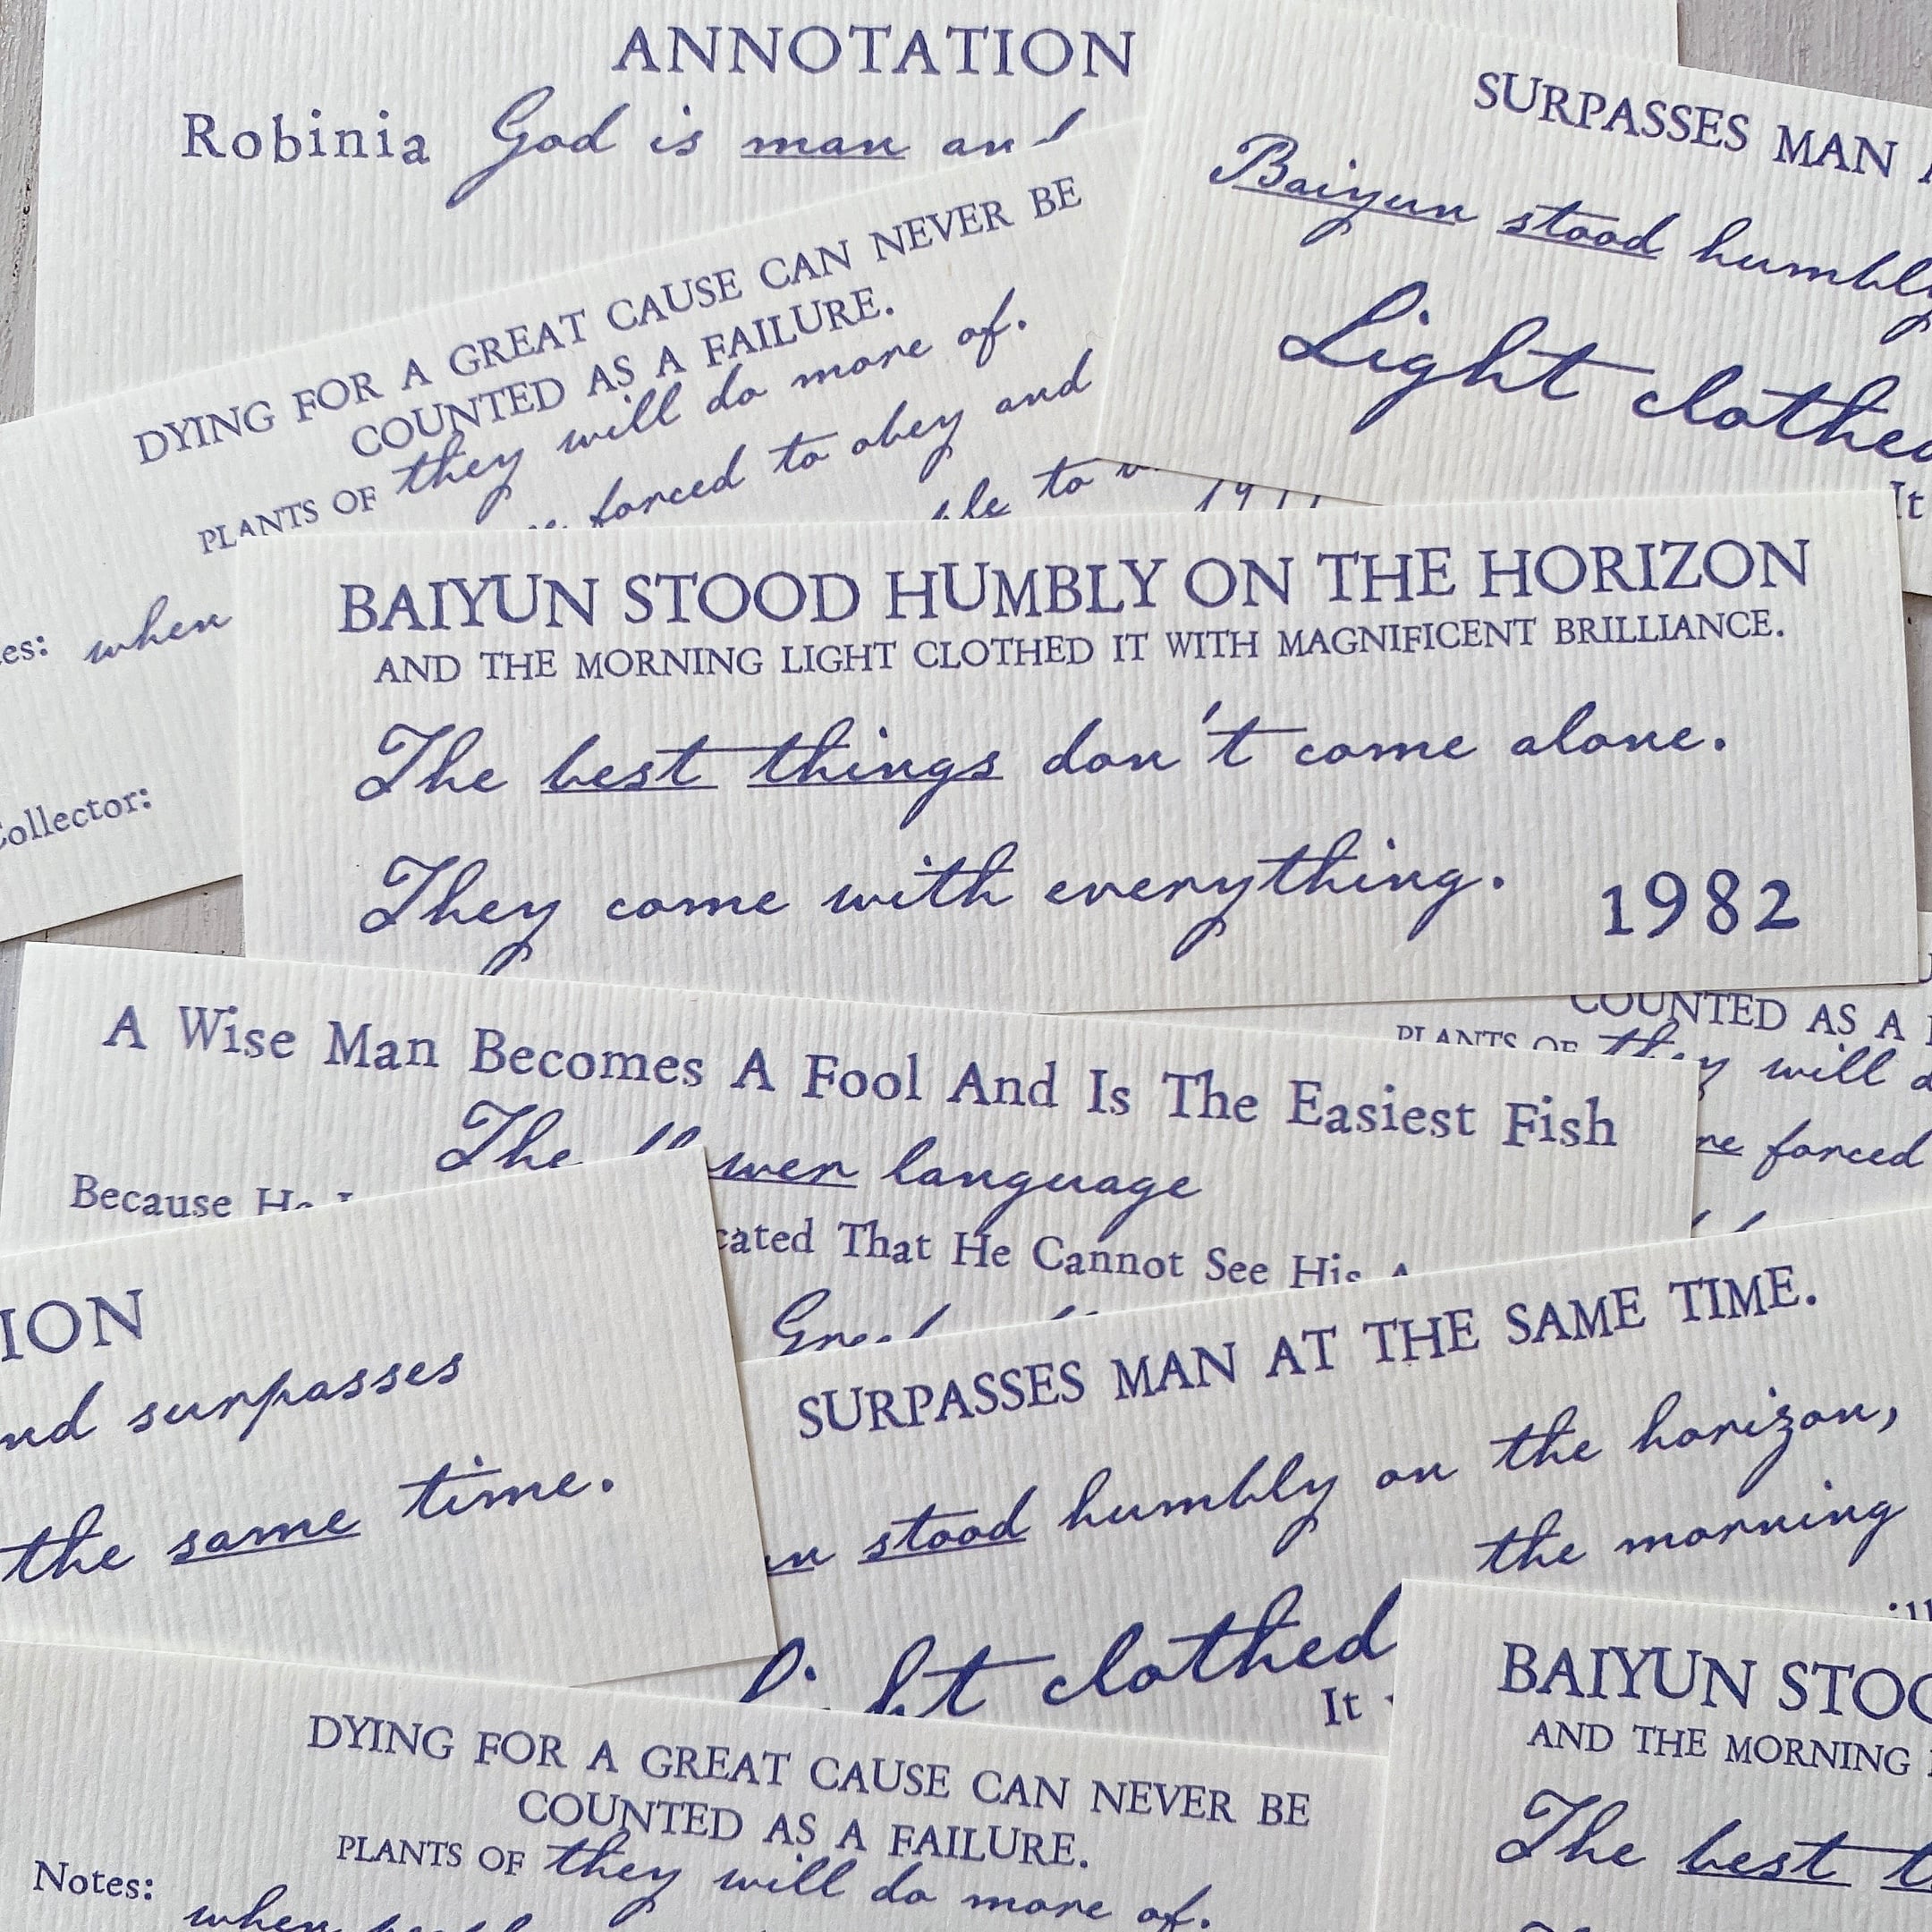 ANNOTATION
Robinia God is man and
SURPASSES MAN
Baiyun stood humbly
Light clothed
It
DYING FOR A GREAT CAUSE CAN NEVER BE
COUNTED AS A FAILURE.
PLANTS OF they will do more of.
forced to obey and
to
when
Collector:
BAIYUN STOOD HUMBLY ON THE HORIZON
AND THE MORNING LIGHT CLOTHED IT WITH MAGNIFICENT BRILLIANCE.
The best things don't come alone.
They come with everything.
1982
COUNTED AS A
PLANTS OF they will
forced
A Wise Man Becomes A Fool And Is The Easiest Fish
The flower language
Because He
cated That He Cannot See His
ION
nd surpasses
the same time.
SURPASSES MAN AT THE SAME TIME.
stood humbly on the horizon,
the morning
light clothed
It
DYING FOR A GREAT CAUSE CAN NEVER BE
COUNTED AS A FAILURE.
PLANTS OF they will do more of.
Notes: when
BAIYUN STOO
AND THE MORNING
The best